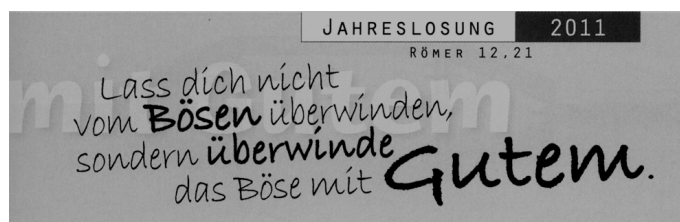 JAHRESLOSUNG 2011
RÖMER 12,21
mit Gutem
Lass dich nicht
vom Bösen überwinden,
sondern überwinde
das Böse mit Gutem.